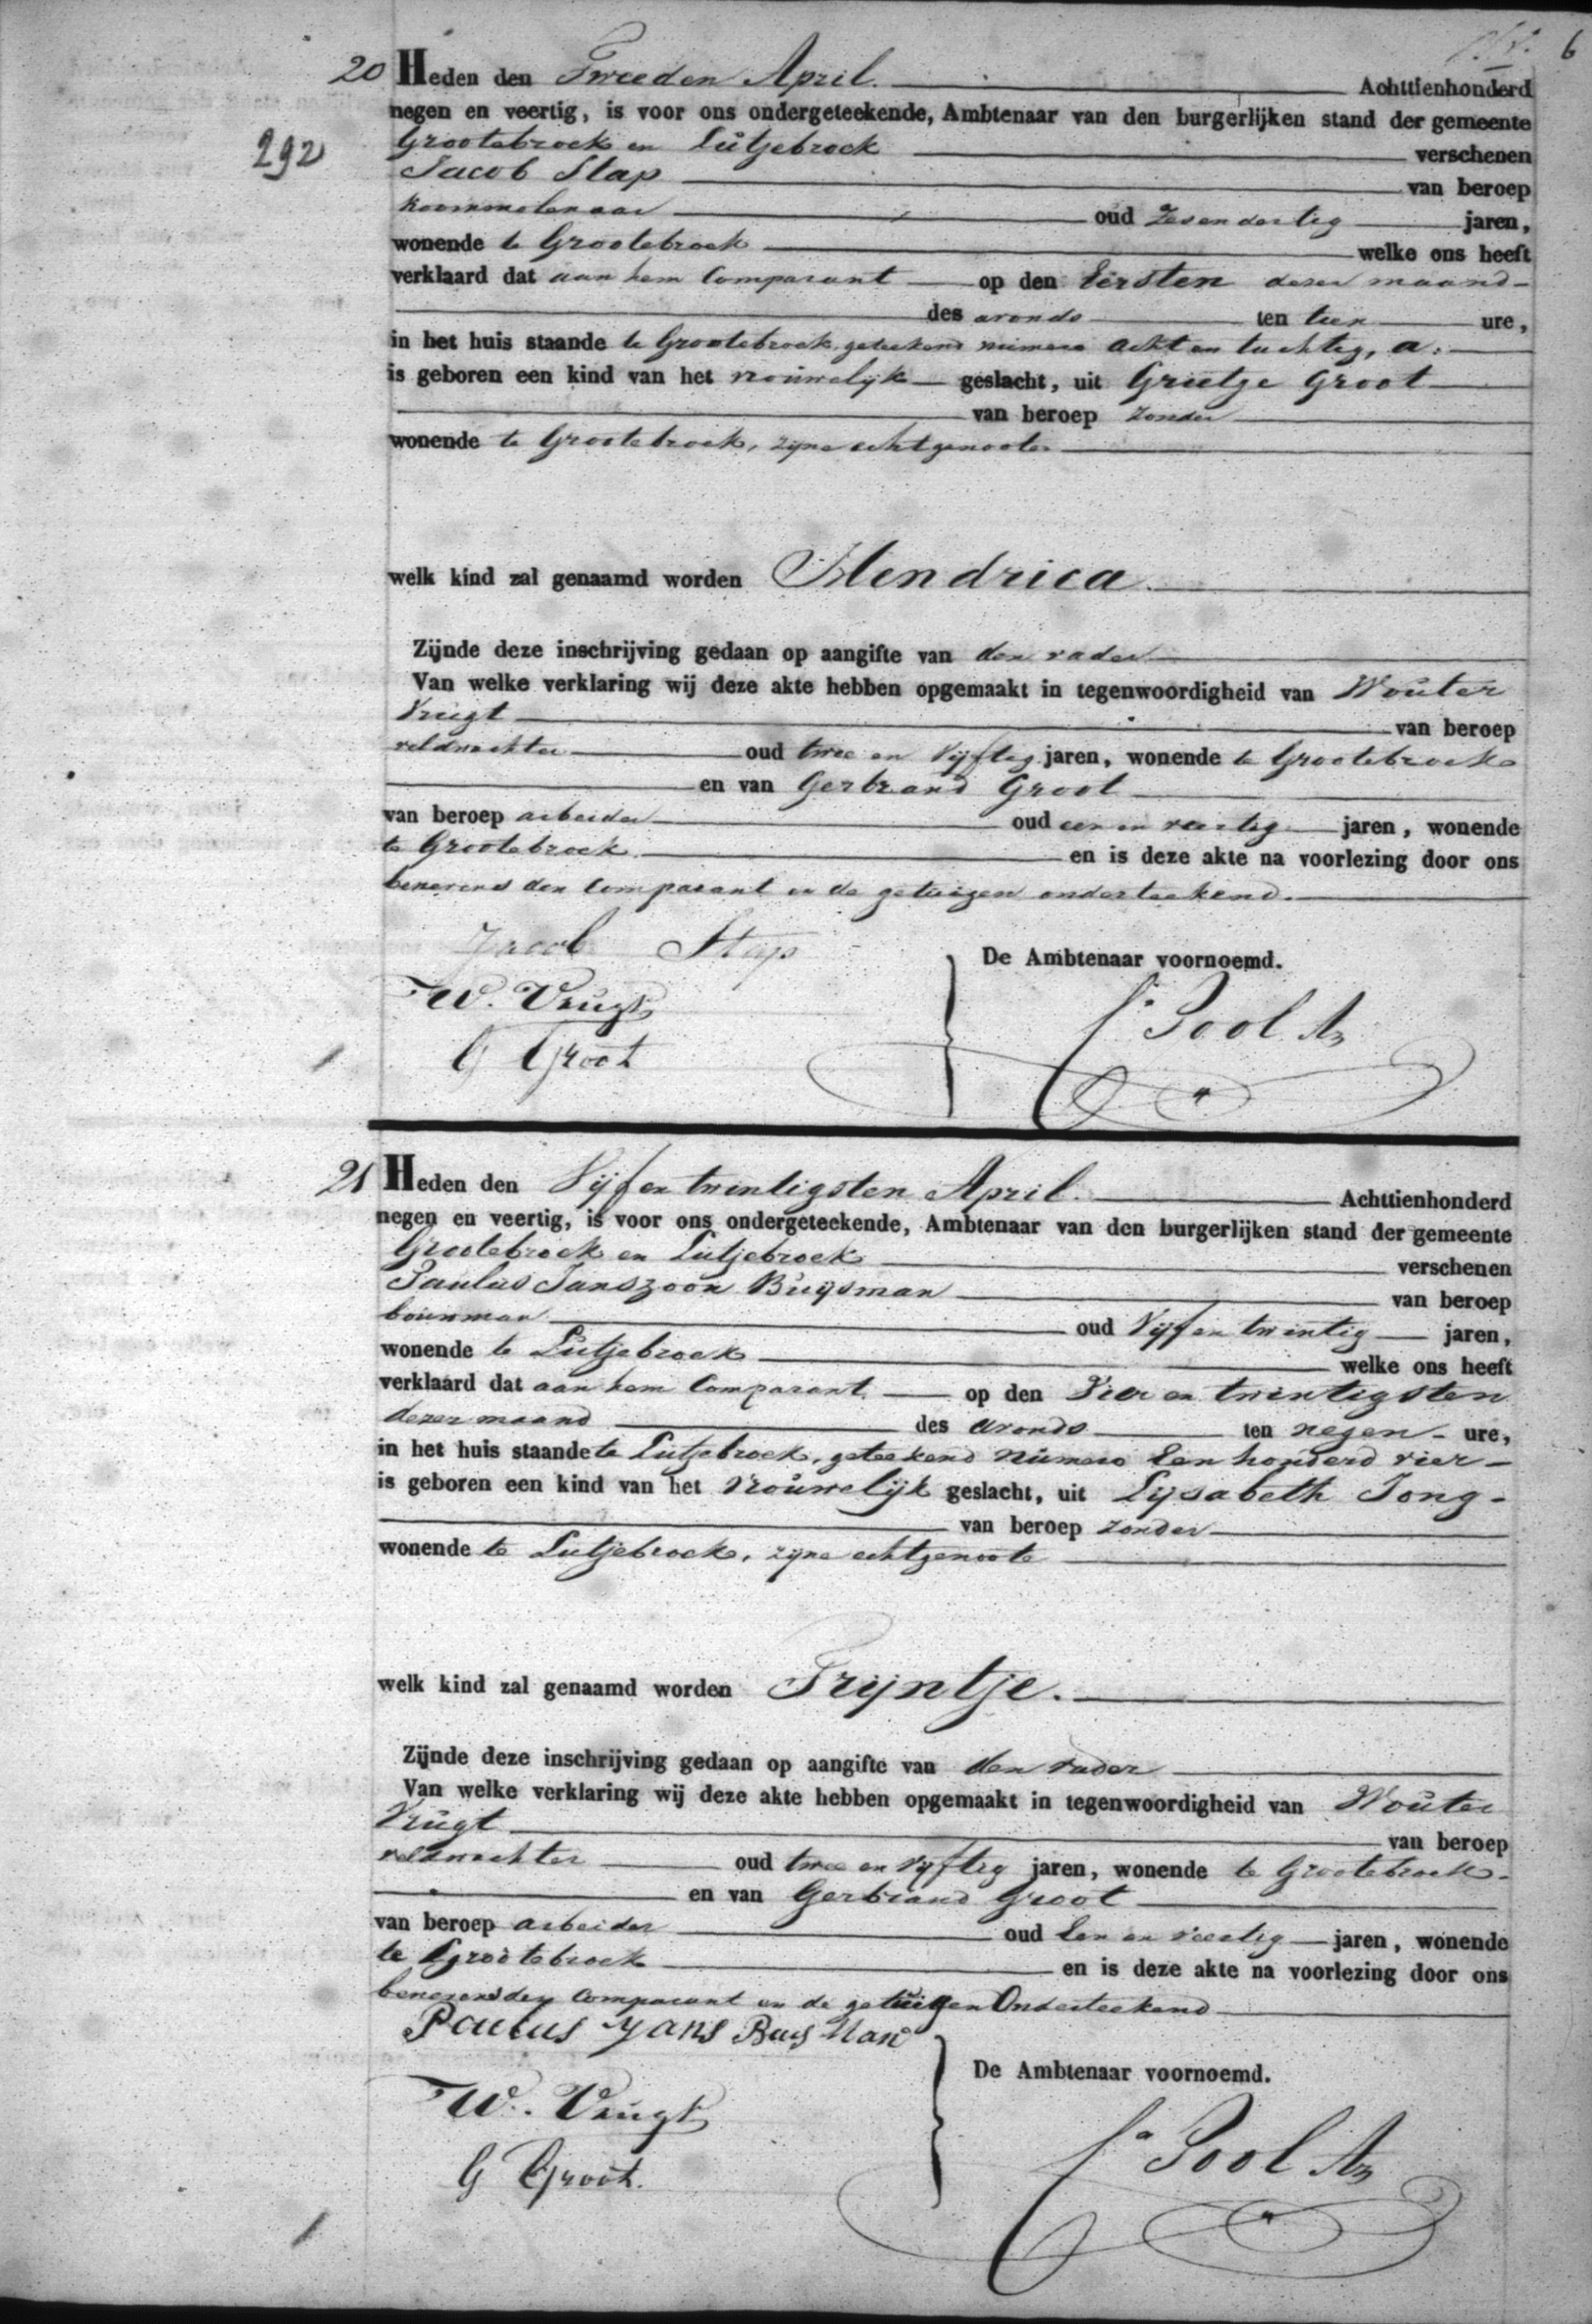 6
20 Heden den Tweeden April. Achttienhonderd
negen en veertig, is voor ons ondergeteekende, Ambtenaar van den burgerlijken stand der gemeente
292 Grootebroek en Lutjebroek verschenen
Jacob Stap van beroep
Koornmolenaar oud Zesendertig jaren,
wonende te Grootebroek welke ons heeft
verklaard dat aan hem Comparant op den Eersten dezer maand
des avonds ten tien ure,
in het huis staande te Grootebroek, geteekend numero acht en tachtig, a.
is geboren een kind van het vrouwelijk geslacht, uit Grietje Groot
van beroep zonder
wonende te Grootebroek, zijne echtgenoote
welk kind zal genaamd worden Hendrica.
Zijnde deze inschrijving gedaan op aangifte van den vader
Van welke verklaring wij deze akte hebben opgemaakt in tegenwoordigheid van Wouter
Vrugt van beroep
veldwachter oud twee en Vijftig jaren, wonende te Grootebroek
en van Gerbrand Groot
van beroep arbeider oud een en veertig jaren, wonende
te Grootebroek en is deze akte na voorlezing door ons
benevens den Comparant en de getuigen onderteekend.
Jacob Stap
De Ambtenaar voornoemd.
W. Vrugt
P. Pool Az
G Groot
21 Heden den Vijf en twintigsten April. Achttienhonderd
negen en veertig, is voor ons ondergeteekende, Ambtenaar van den burgerlijken stand der gemeente
Grootebroek en Lutjebroek verschenen
Paulus Janszoon Buijsman van beroep
bouwman oud Vijf en twintig jaren,
wonende te Lutjebroek welke ons heeft
verklaard dat aan hem Comparant op den Vier en twintigsten
dezer maand des avonds ten negen ure,
in het huis staande te Lutjebroek, geteekend numero Een honderd vier
is geboren een kind van het Vrouwelijk geslacht, uit Lijsabeth Jong
van beroep zonder
wonende te Lutjebroek, zijne echtgenoote
welk kind zal genaamd worden Trijntje.
Zijnde deze inschrijving gedaan op aangifte van den vader
Van welke verklaring wij deze akte hebben opgemaakt in tegenwoordigheid van Wouter
Vrugt van beroep
veldwachter oud twee en vijftig jaren, wonende te Grootebroek
en van Gerbrand Groot
van beroep arbeider oud Een en veertig jaren, wonende
te Grootebroek en is deze akte na voorlezing door ons
benevens den Comparant en de getuigen Onderteekend
Paulus Jans Buijsman
De Ambtenaar voornoemd.
W. Vrugt
P. Pool Az
G Groot.